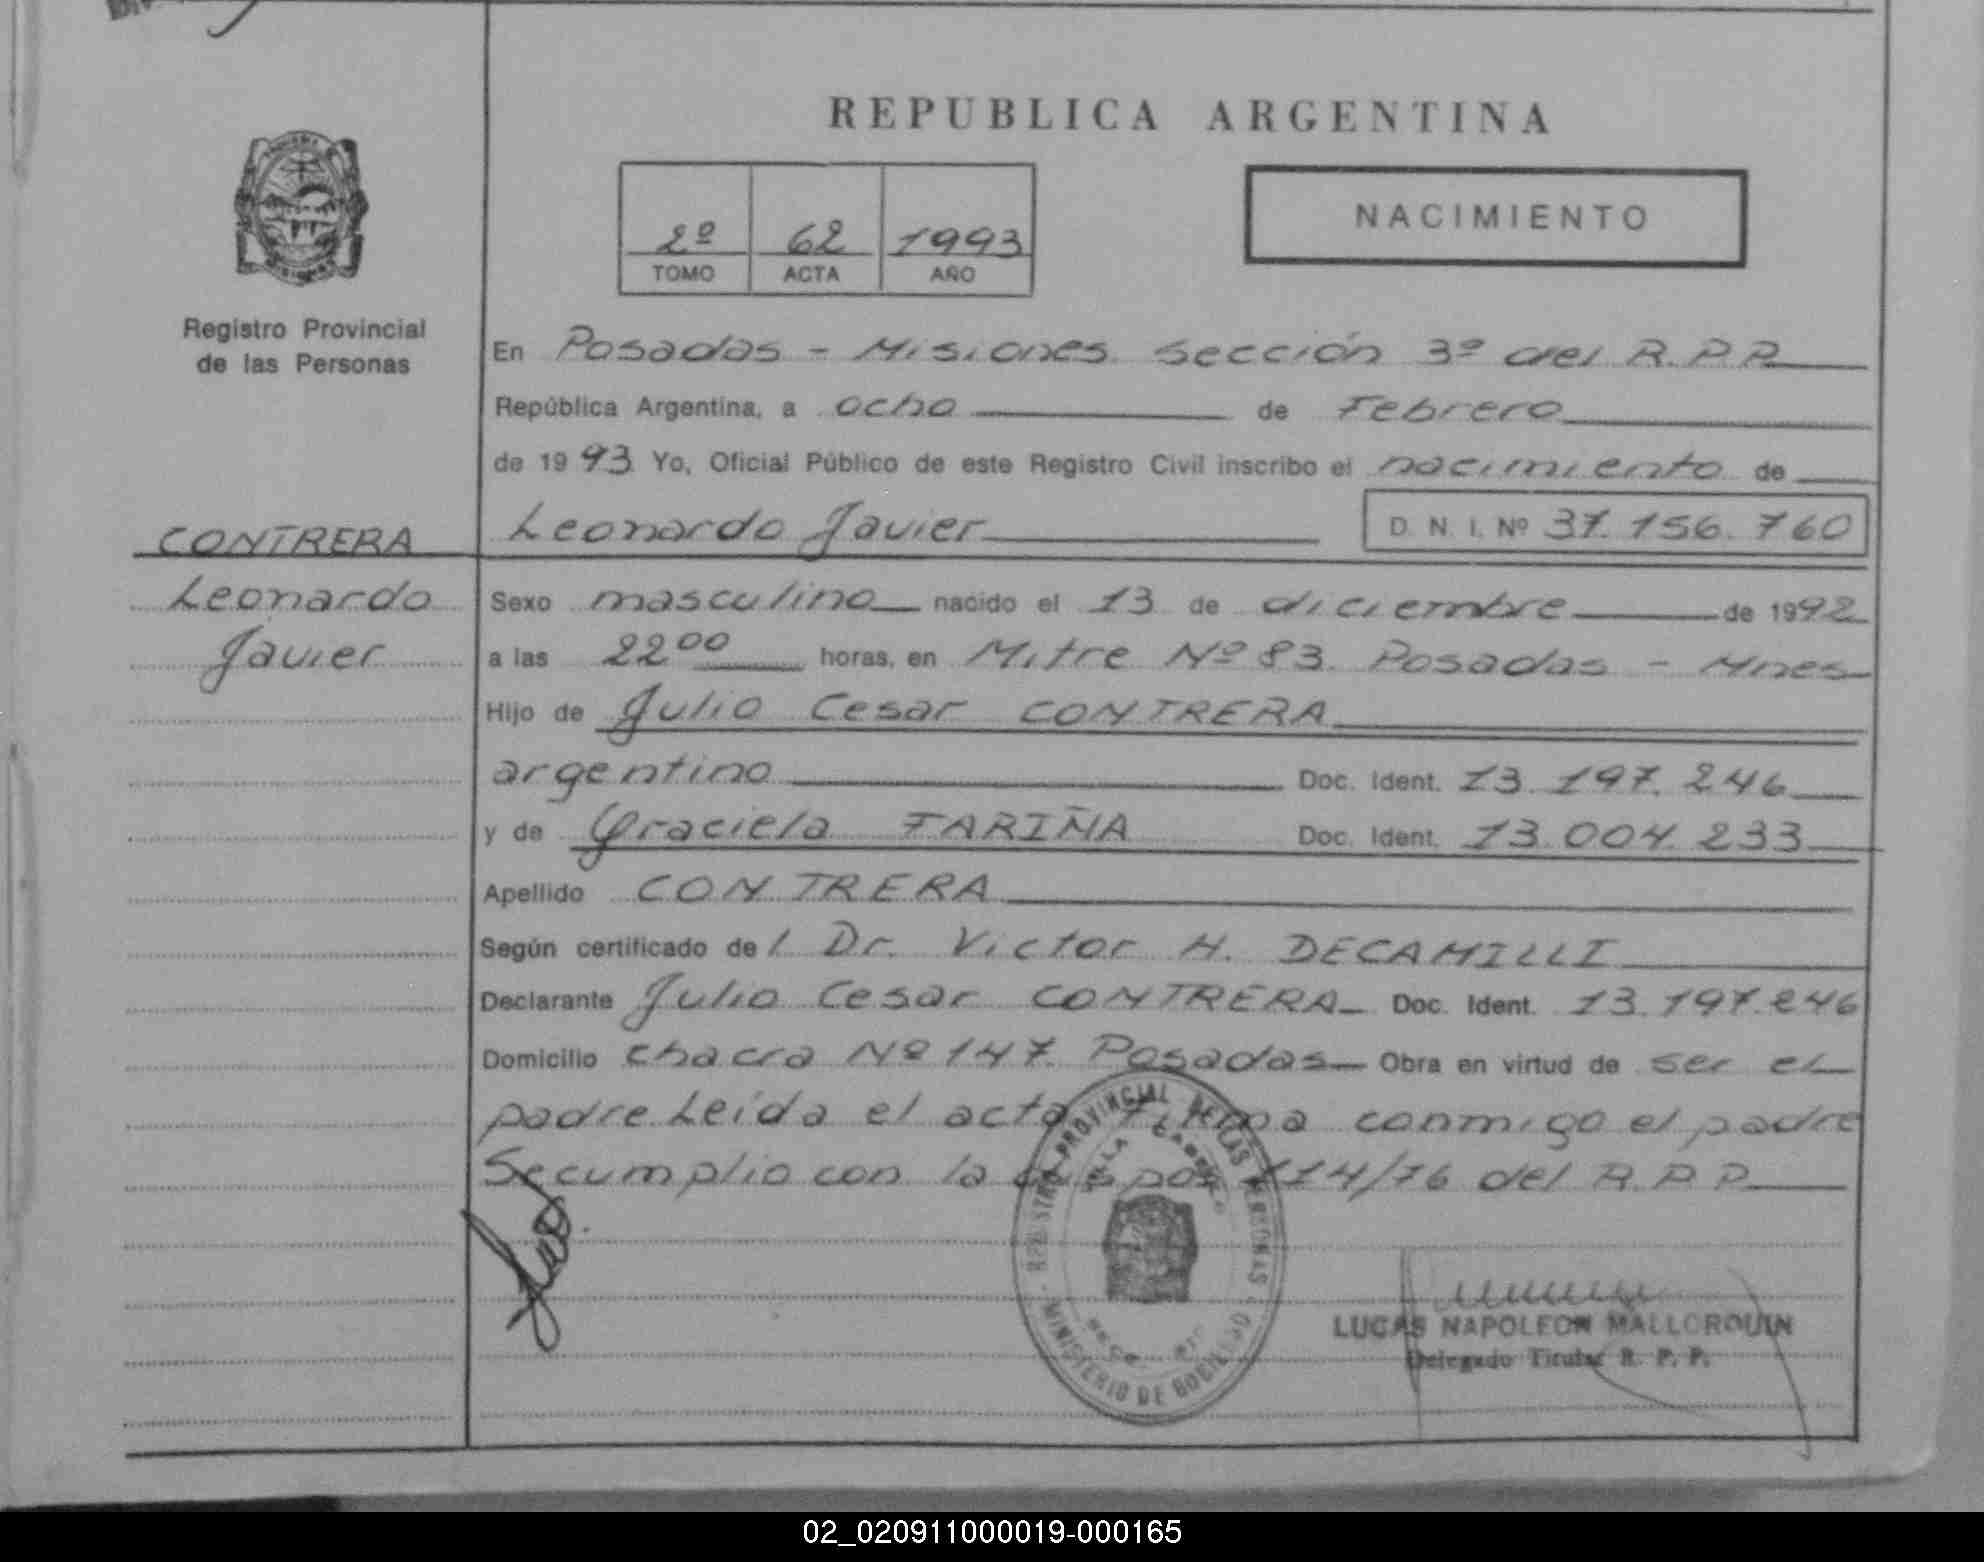 REPUBLICA ARGENTINA
2º 62 1993
TOMO ACTA AÑO
NACIMIENTO
Registro Provincial
de las Personas
En Posadas - Misiones. Sección 3º del R.P.P.
República Argentina, a ocho de Febrero
de 1993 Yo, Oficial Público de este Registro Civil inscribo el nacimiento de
Leonardo Javier D. N. I. Nº 37.156.760
CONTRERA
Leonardo
Javier
Sexo masculino nacido el 13 de diciembre de 1992
a las 22 00 horas, en Mitre Nº 83. Posadas - Mnes
Hijo de Julio Cesar CONTRERA
argentino Doc. Ident. 13.197.246
y de Graciela FARIÑA Doc. Ident. 13.004.233
Apellido CONTRERA
Según certificado del Dr. Victor H. DECAMILLI
Declarante Julio Cesar CONTRERA Doc. Ident. 13.197.246
Domicilio chacra Nº 147. Posadas Obra en virtud de ser el
padre. Leída el acta Firma conmigo el padre
Se cumplio con la dispos 114/76 del R.P.P.
REGISTRO PROVINCIAL DE LAS PERSONAS
VILLA CABELLO
MINISTERIO DE GOBIERNO
LUCAS NAPOLEON MALLORQUIN
Delegado Titular R. P. P.
02_020911000019-000165